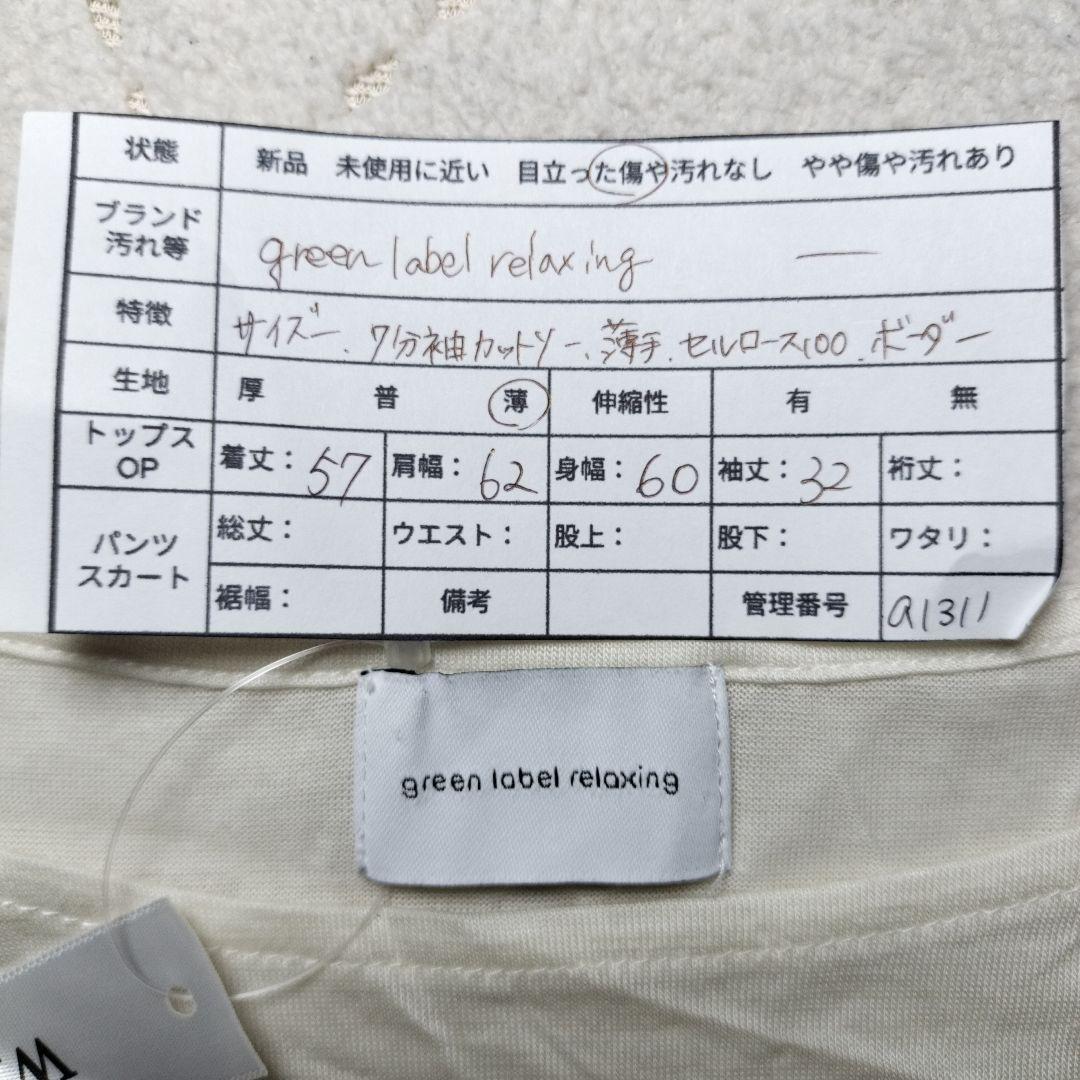 状態 新品 未使用に近い 目立った傷や汚れなし やや傷や汚れあり
ブランド
汚れ等 green label relaxing ―
特徴 サイズ―、7分袖カットソー、薄手、セルロース100、ボーダー
生地 厚 普 薄 伸縮性 有 無
トップス
OP 着丈：57 肩幅：62 身幅：60 袖丈：32 裄丈：
パンツ
スカート 総丈： ウエスト： 股上： 股下： ワタリ：
裾幅： 備考 管理番号 a1311
green label relaxing